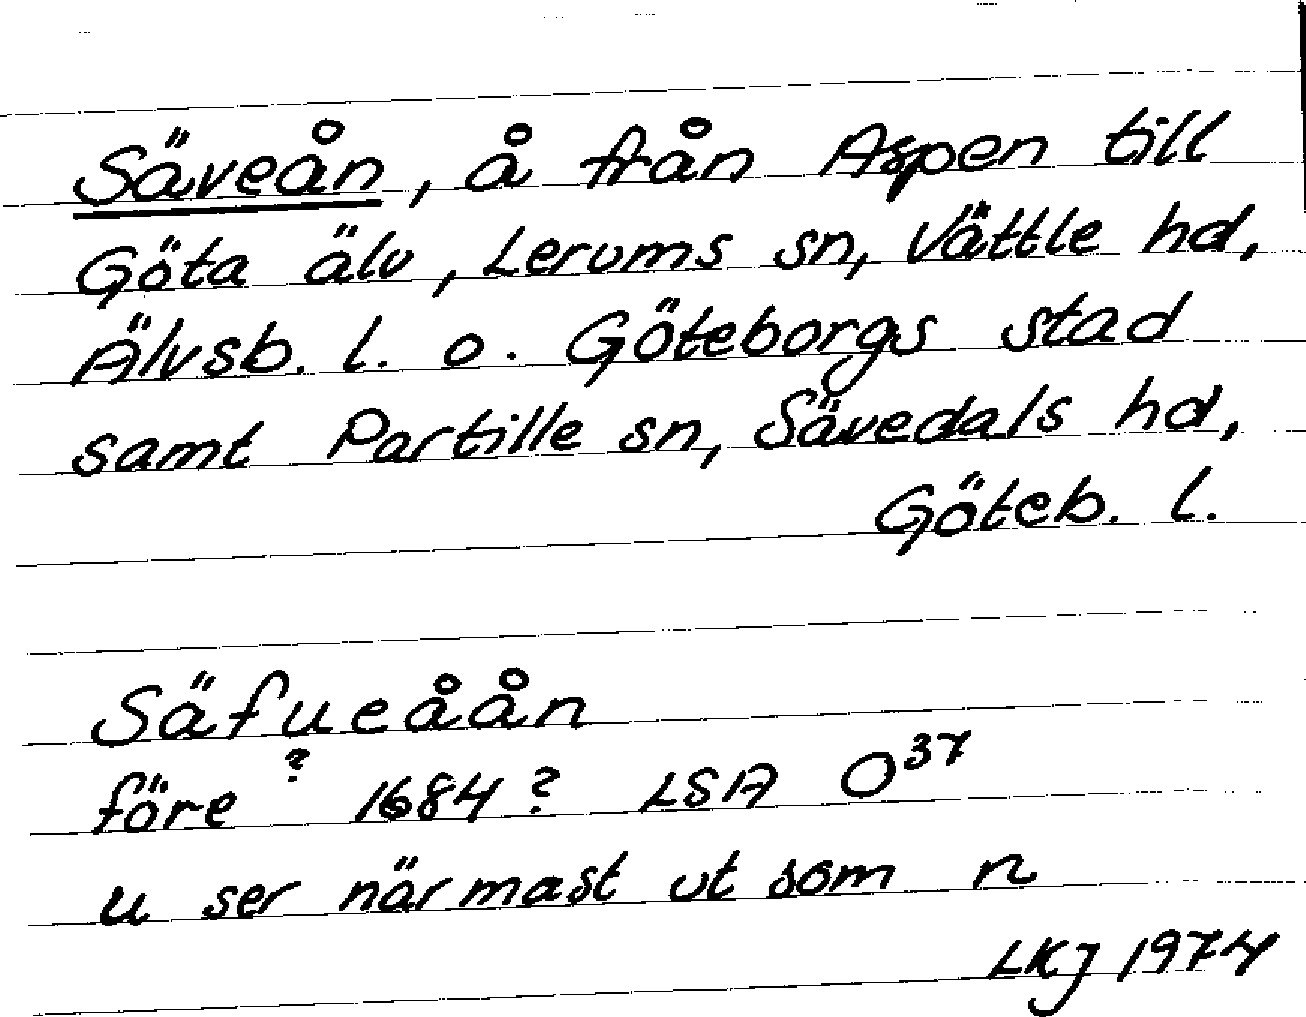 Säveån, å från Aspen till
Göta älv, Lerums sn, Vättle hd,
Älvsb. l. o. Göteborgs stad
samt Partille sn, Sävedals hd,
Göteb. l.
Säfueåån
före ? 1684 ? LSA O37
u ser närmast ut som n
LKJ 1974